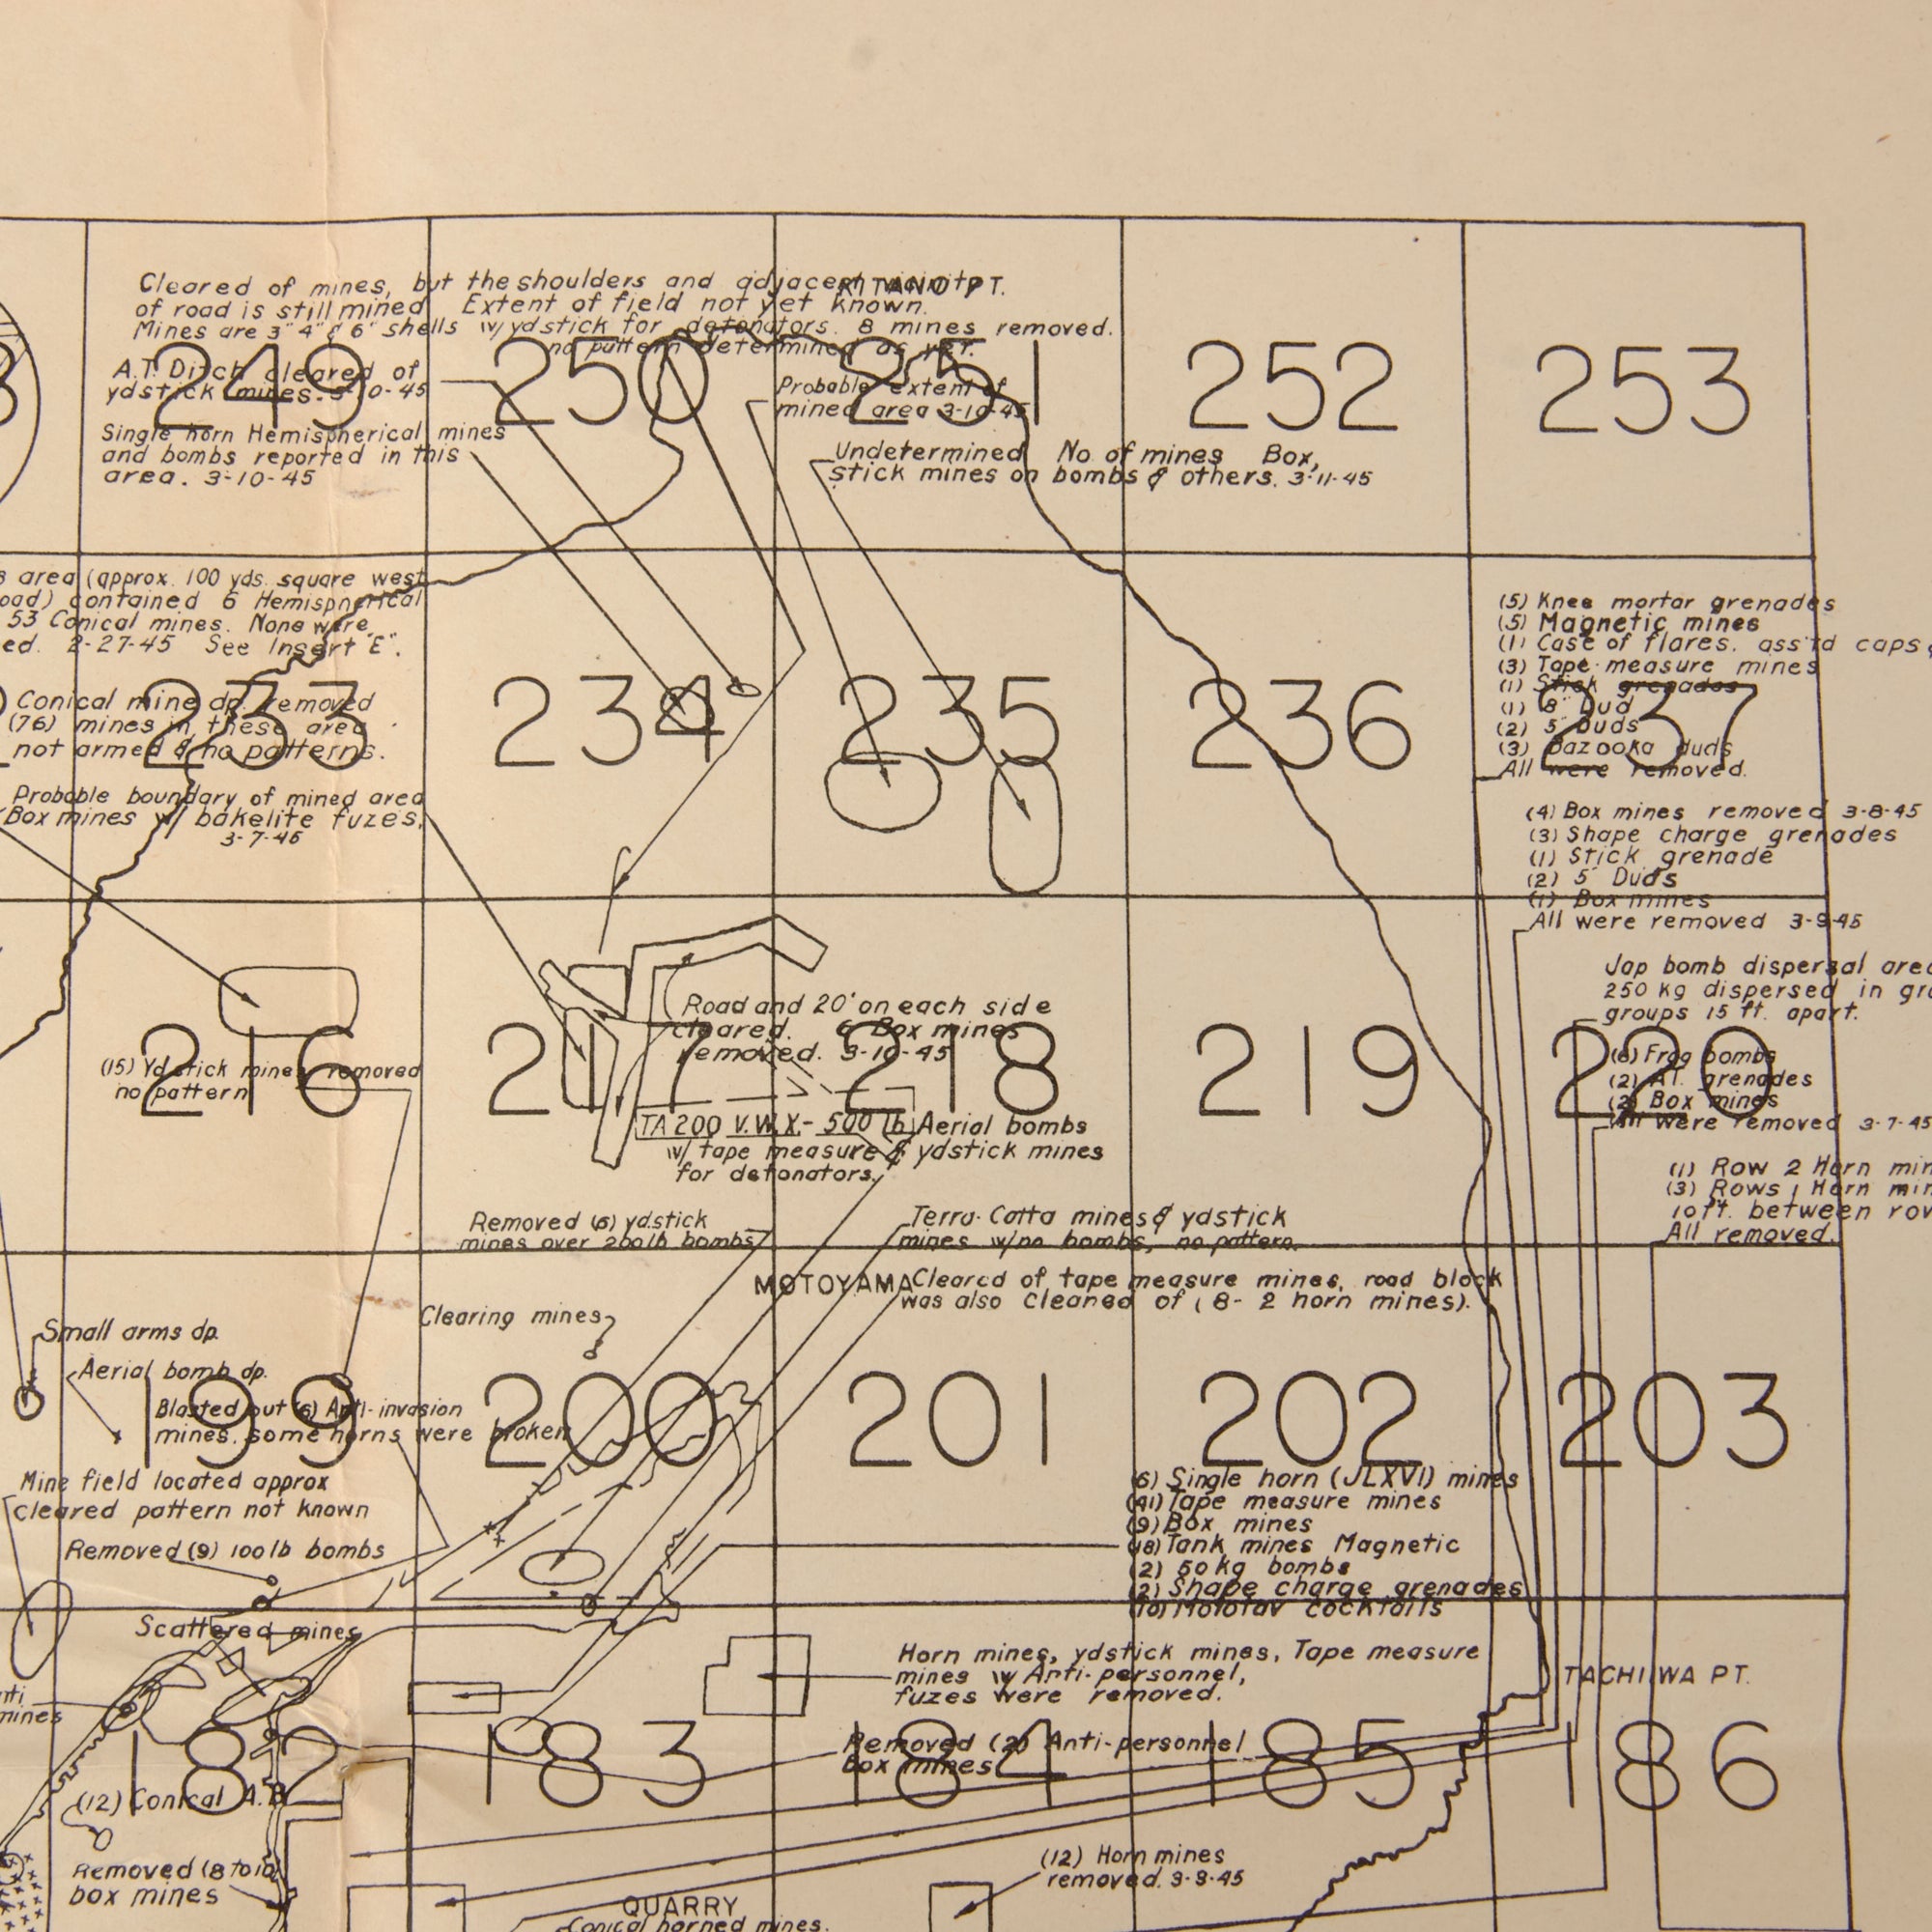 Cleared of mines, but the shoulders and adjacent vicinity
KITANO PT.
of road is still mined. Extent of field not yet known.
Mines are 3" 4" & 6" shells w/ydstick for detonators. 8 mines removed.
no pattern determined as yet.
249
250
251
252
253
A.T. Ditch cleared of
ydstick mines. 3-10-45
Probable extent of
mined area 3-10-45
Single horn Hemispherical mines
and bombs reported in this
area. 3-10-45
Undetermined No. of mines Box,
stick mines on bombs & others. 3-11-45
area (approx. 100 yds. square west
oad) contained 6 Hemispherical
53 Conical mines. None were
ed. 2-27-45 See Insert "E".
Conical mine dp. removed
(76) mines in these area
not armed & no patterns.
233
234
235
236
237
Probable boundary of mined area
Box mines w/ bakelite fuzes,
3-7-45
(5) Knee mortar grenades
(5) Magnetic mines
(1) Case of flares. ass'td caps
(3) Tape-measure mines
(1) Stick grenades
(1) 8" Dud
(2) 5" Duds
(3) Bazooka duds
All were removed.
(4) Box mines removed 3-8-45
(3) Shape charge grenades
(1) Stick grenade
(2) 5" Duds
(1) Box mines
All were removed 3-9-45
Jap bomb dispersal area
250 kg dispersed in
groups 15 ft. apart.
216
217
218
219
220
Road and 20' on each side
cleared. 6 Box mines
removed. 3-10-45
(15) Ydstick mines removed
no pattern
(6) Frog bombs
(2) AT. grenades
(2) Box mines
All were removed 3-7-45
TA 200 V.W.X.- 500 lb Aerial bombs
w/ tape measure & ydstick mines
for detonators.
(1) Row 2 Horn
(3) Rows 1 Horn
10 ft. between
All removed.
Removed (6) ydstick
mines over 200 lb bombs
Terra-Cotta mines & ydstick
mines w/no bombs, no pattern.
MOTOYAMA
Cleared of tape measure mines, road block
was also cleaned of (8- 2 horn mines).
Clearing mines
Small arms dp.
Aerial bomb dp.
199
200
201
202
203
Blasted out (6) Anti-invasion
mines. some horns were broken
Mine field located approx
cleared pattern not known
Removed (9) 100 lb bombs
(6) Single horn (JLXVI) mines
(41) Tape measure mines
(9) Box mines
(18) Tank mines Magnetic
(2) 50 kg bombs
(2) Shape charge grenades
(10) Molotav cocktails
Scattered mines
Horn mines, ydstick mines, Tape measure
mines w/ Anti-personnel,
fuzes were removed.
TACHIIWA PT.
mines
182
183
184
185
186
Removed (2) Anti-personnel
Box mines
(12) Conical A.B.
Removed (8 to 10)
box mines
(12) Horn mines
removed. 3-3-45
QUARRY
Conical horned mines.